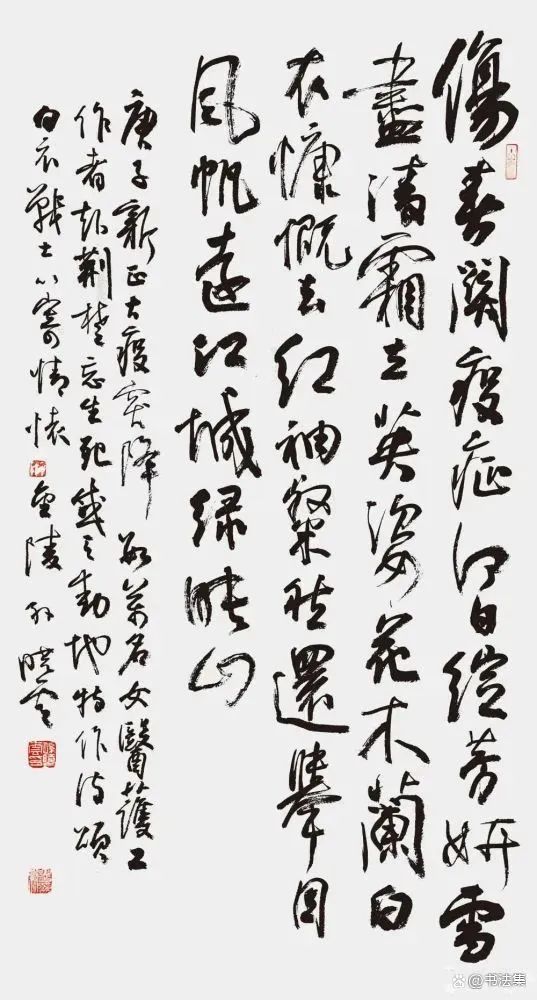 傷春關疫症何日綻芳妍雪
盡清霜立英姿花木蘭白
衣慷慨去紅袖粲然還舉目
风帆遠江城绿映山
庚子新正大疫突降数萬名女醫護工
作者赴荆楚忘生死感天動地特作诗頌
白衣戰士以寄情懷金陵孙晓雲
@书法集